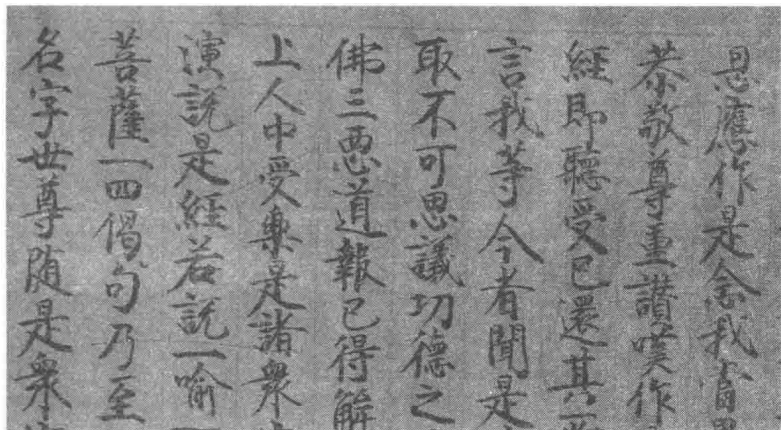 恩應作是念我當
恭敬尊重讃嘆作
經即聽受已還其
言我等今者聞是
取不可思議切德之
佛三惡道報已得解
上人中受樂是諸衆
演說是經若說一喻
菩薩一四偈句乃至
名字世尊随是衆